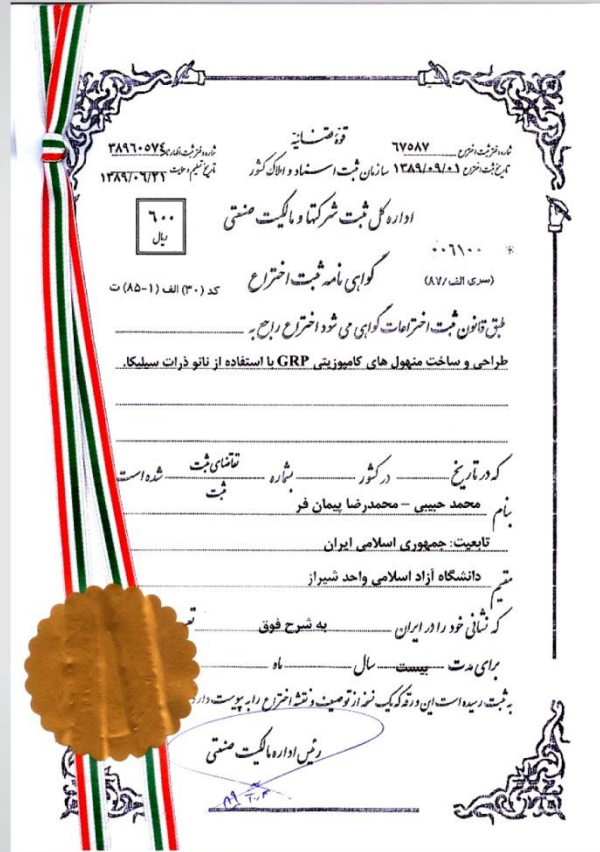 قوه قضائیه
شماره دفتر ثبت اختراع ۶۷۵۸۷
شماره دفتر ثبت اظهارنامه ۳۸۹۶۰۵۷۴
تاریخ ثبت اختراع ۱۳۸۹/۰۹/۰۱
سازمان ثبت اسناد و املاک کشور
تاریخ تسلیم ۱۳۸۹/۰۶/۲۱
اداره کل ثبت شرکتها و مالکیت صنعتی
۶۰۰
ریال
* ۰۰۶۱۰۰
(سری الف/۸۷)
گواهی نامه ثبت اختراع
کد (۳۰) الف (۱-۸۵) ت
طبق قانون ثبت اختراعات گواهی می شود اختراع راجع به
طراحی و ساخت منهول های کامپوزیتی GRP با استفاده از نانو ذرات سیلیکا.
که در تاریخ در کشور بشماره تقاضای ثبت شده است
ثبت
بنام محمد حبیبی – محمدرضا پیمان فر
تابعیت: جمهوری اسلامی ایران
مقیم دانشگاه آزاد اسلامی واحد شیراز
که نشانی خود را در ایران به شرح فوق
برای مدت بیست سال ماه
به ثبت رسیده است این ورقه که یک نسخه از توصیف و نقشه اختراع را به پیوست دارد
رئیس اداره مالکیت صنعتی